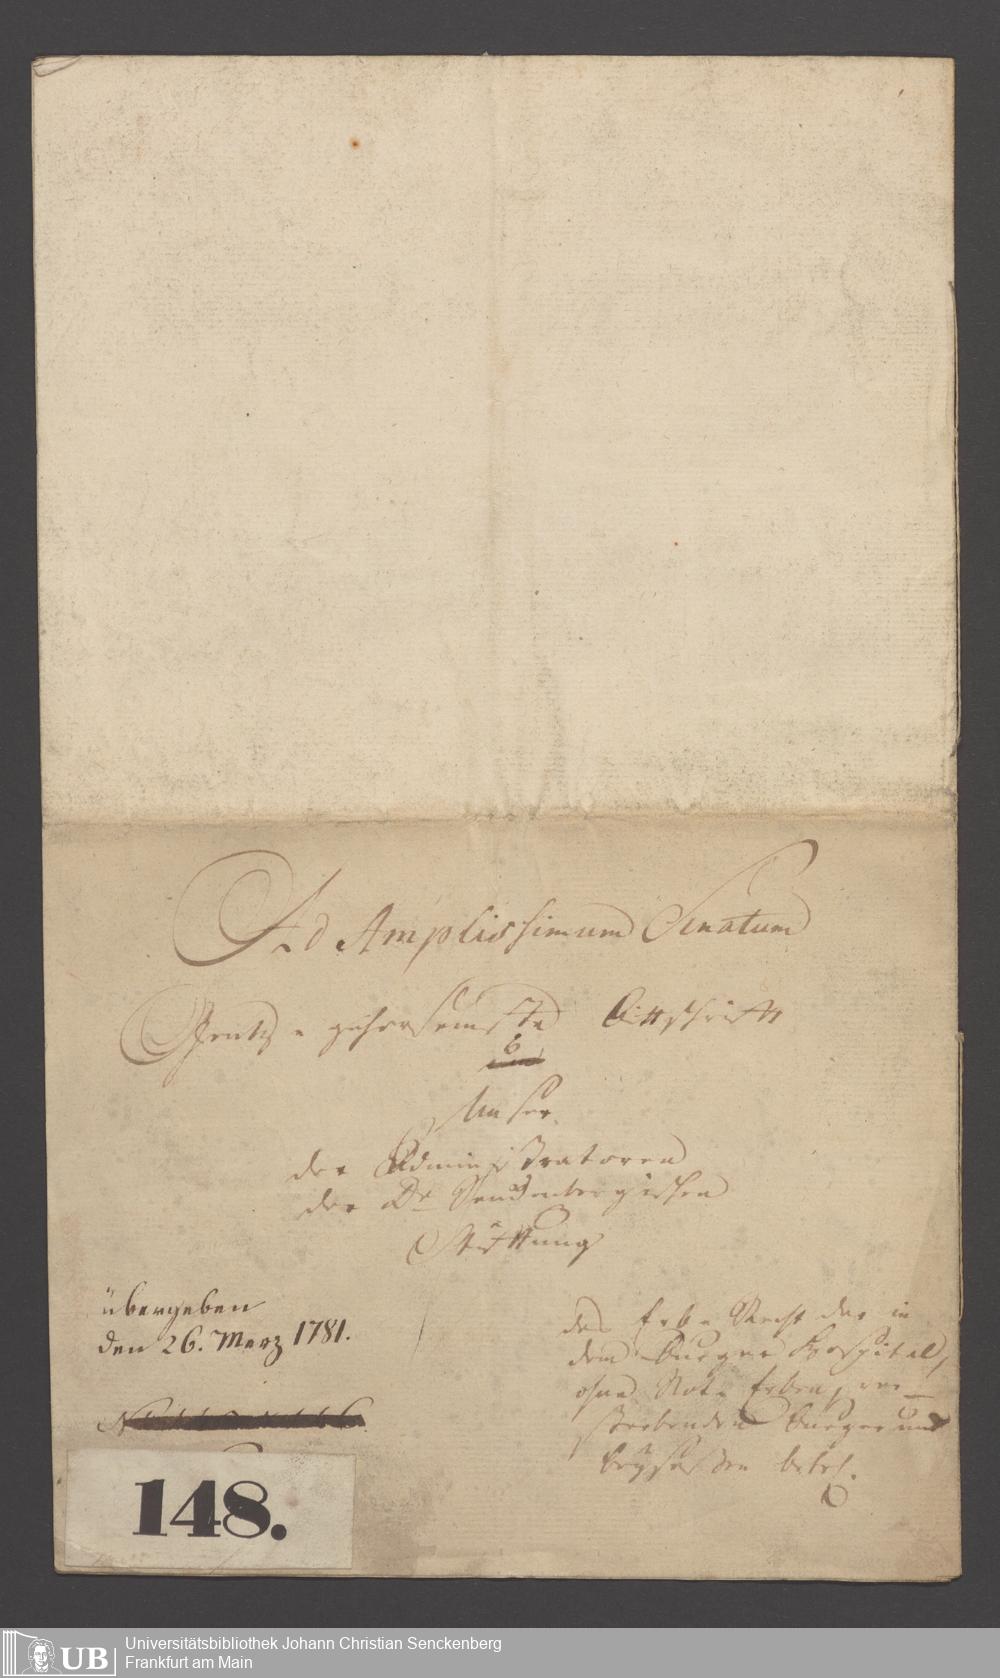 Ad Amplissimum Senatum
gehorsamste Bittschrifft
Unser
der Administratoren
der Dr. Senckenbergischen
Stifftung
übergeben
den 26. Merz 1781.
das Erb-Recht der in
dem Burger Hospital,
ohne Not-Erben, ver-
sterbenden Burger und
Beysassen betr.
148.
UB
Universitätsbibliothek Johann Christian Senckenberg
Frankfurt am Main